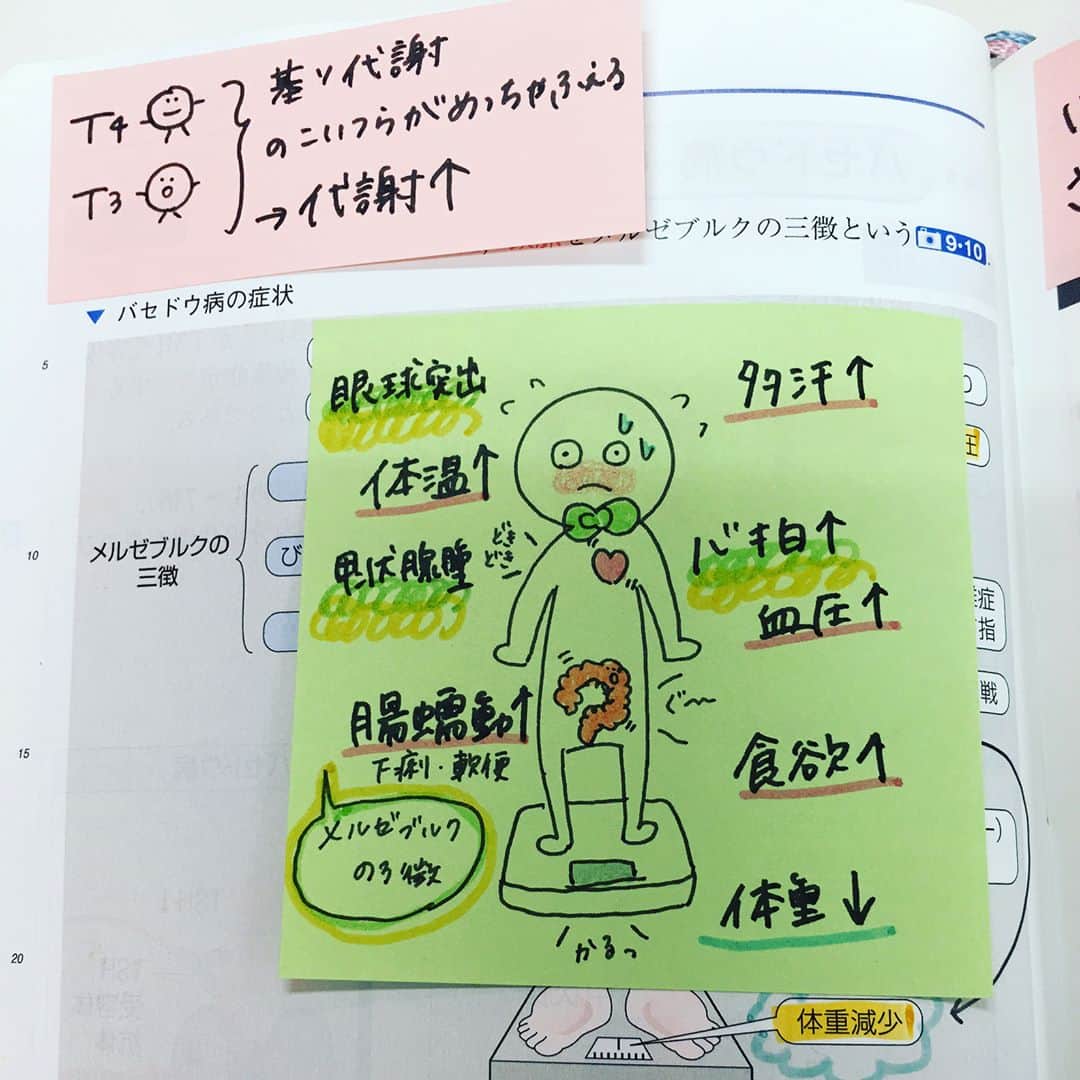 T4
T3
基ソ代謝
のこいつらがめっちゃふえる
→代謝↑
メルゼブルクの三徴という
9・10
▼ バセドウ病の症状
5
眼球突出
多汗↑
体温↑
どき
どき
バキ白↑
10
メルゼブルクの
三徴
び
甲状腺腫
血圧↑
圧
症
指
戦
腸蠕動↑
下痢・軟便
ぐ〜
食欲↑
15
メルゼブルク
の3徴
体重↓
かるっ
20
体重減少